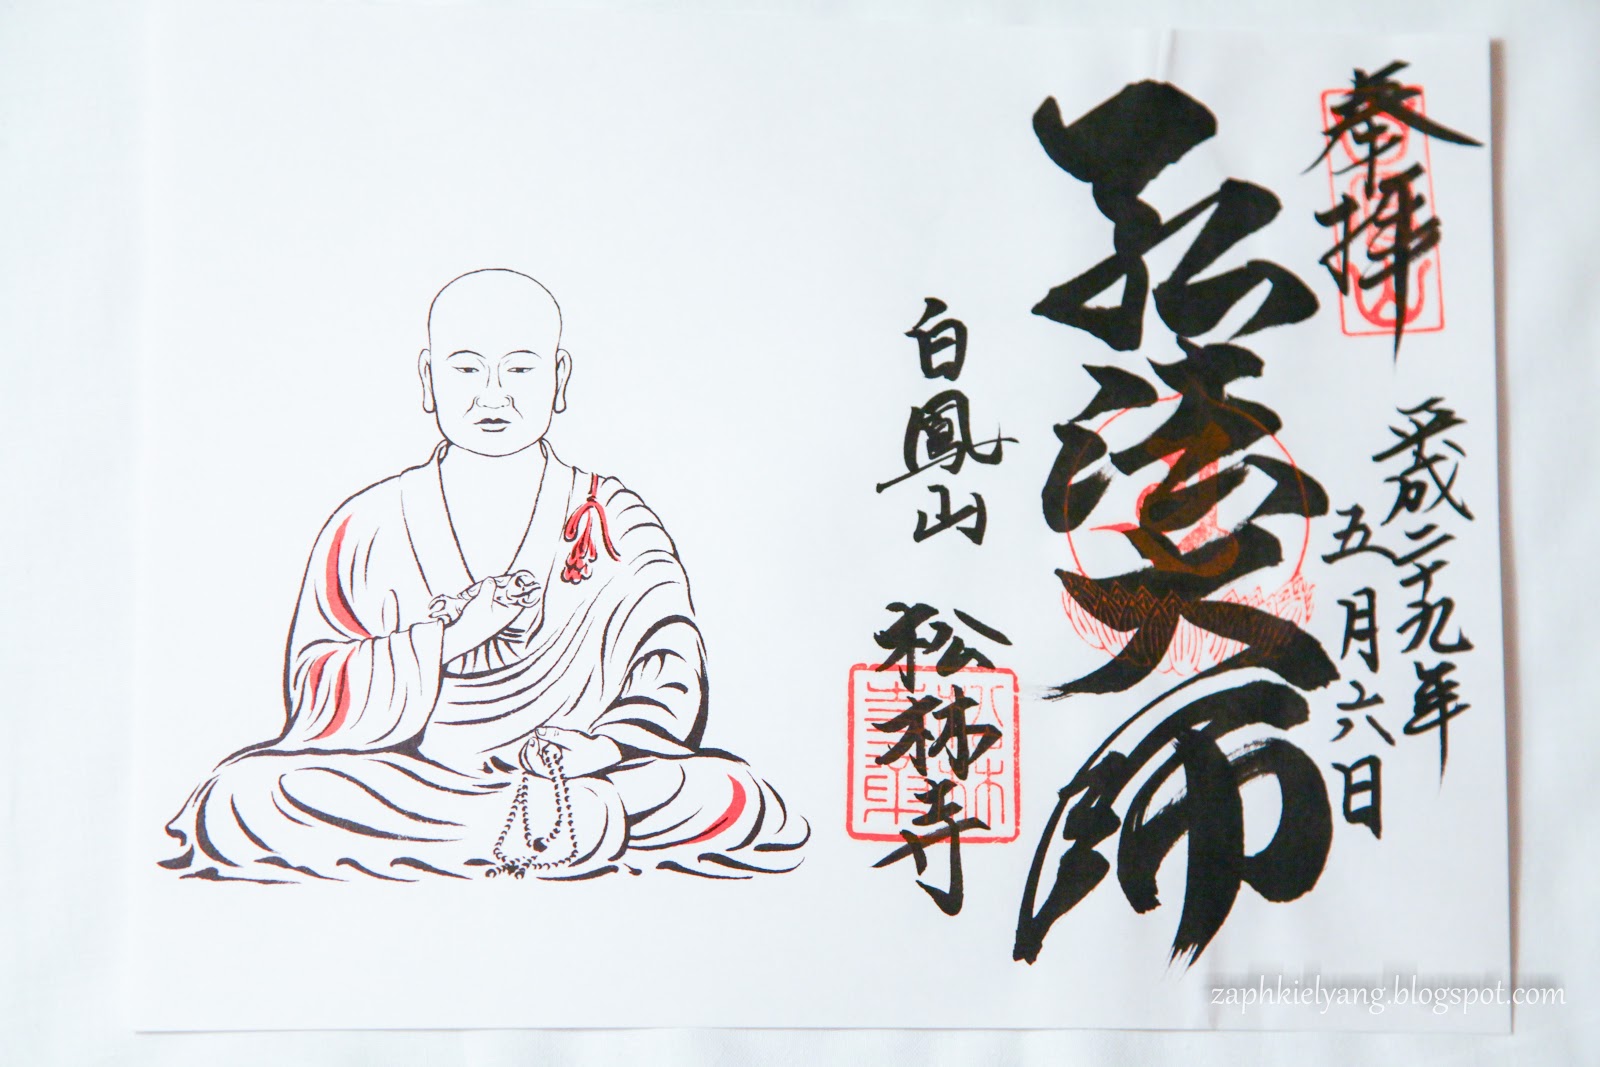 奉拝
平成二十九年
五月六日
弘法大師
白鳳山 松林寺
zaphkielyang.blogspot.com